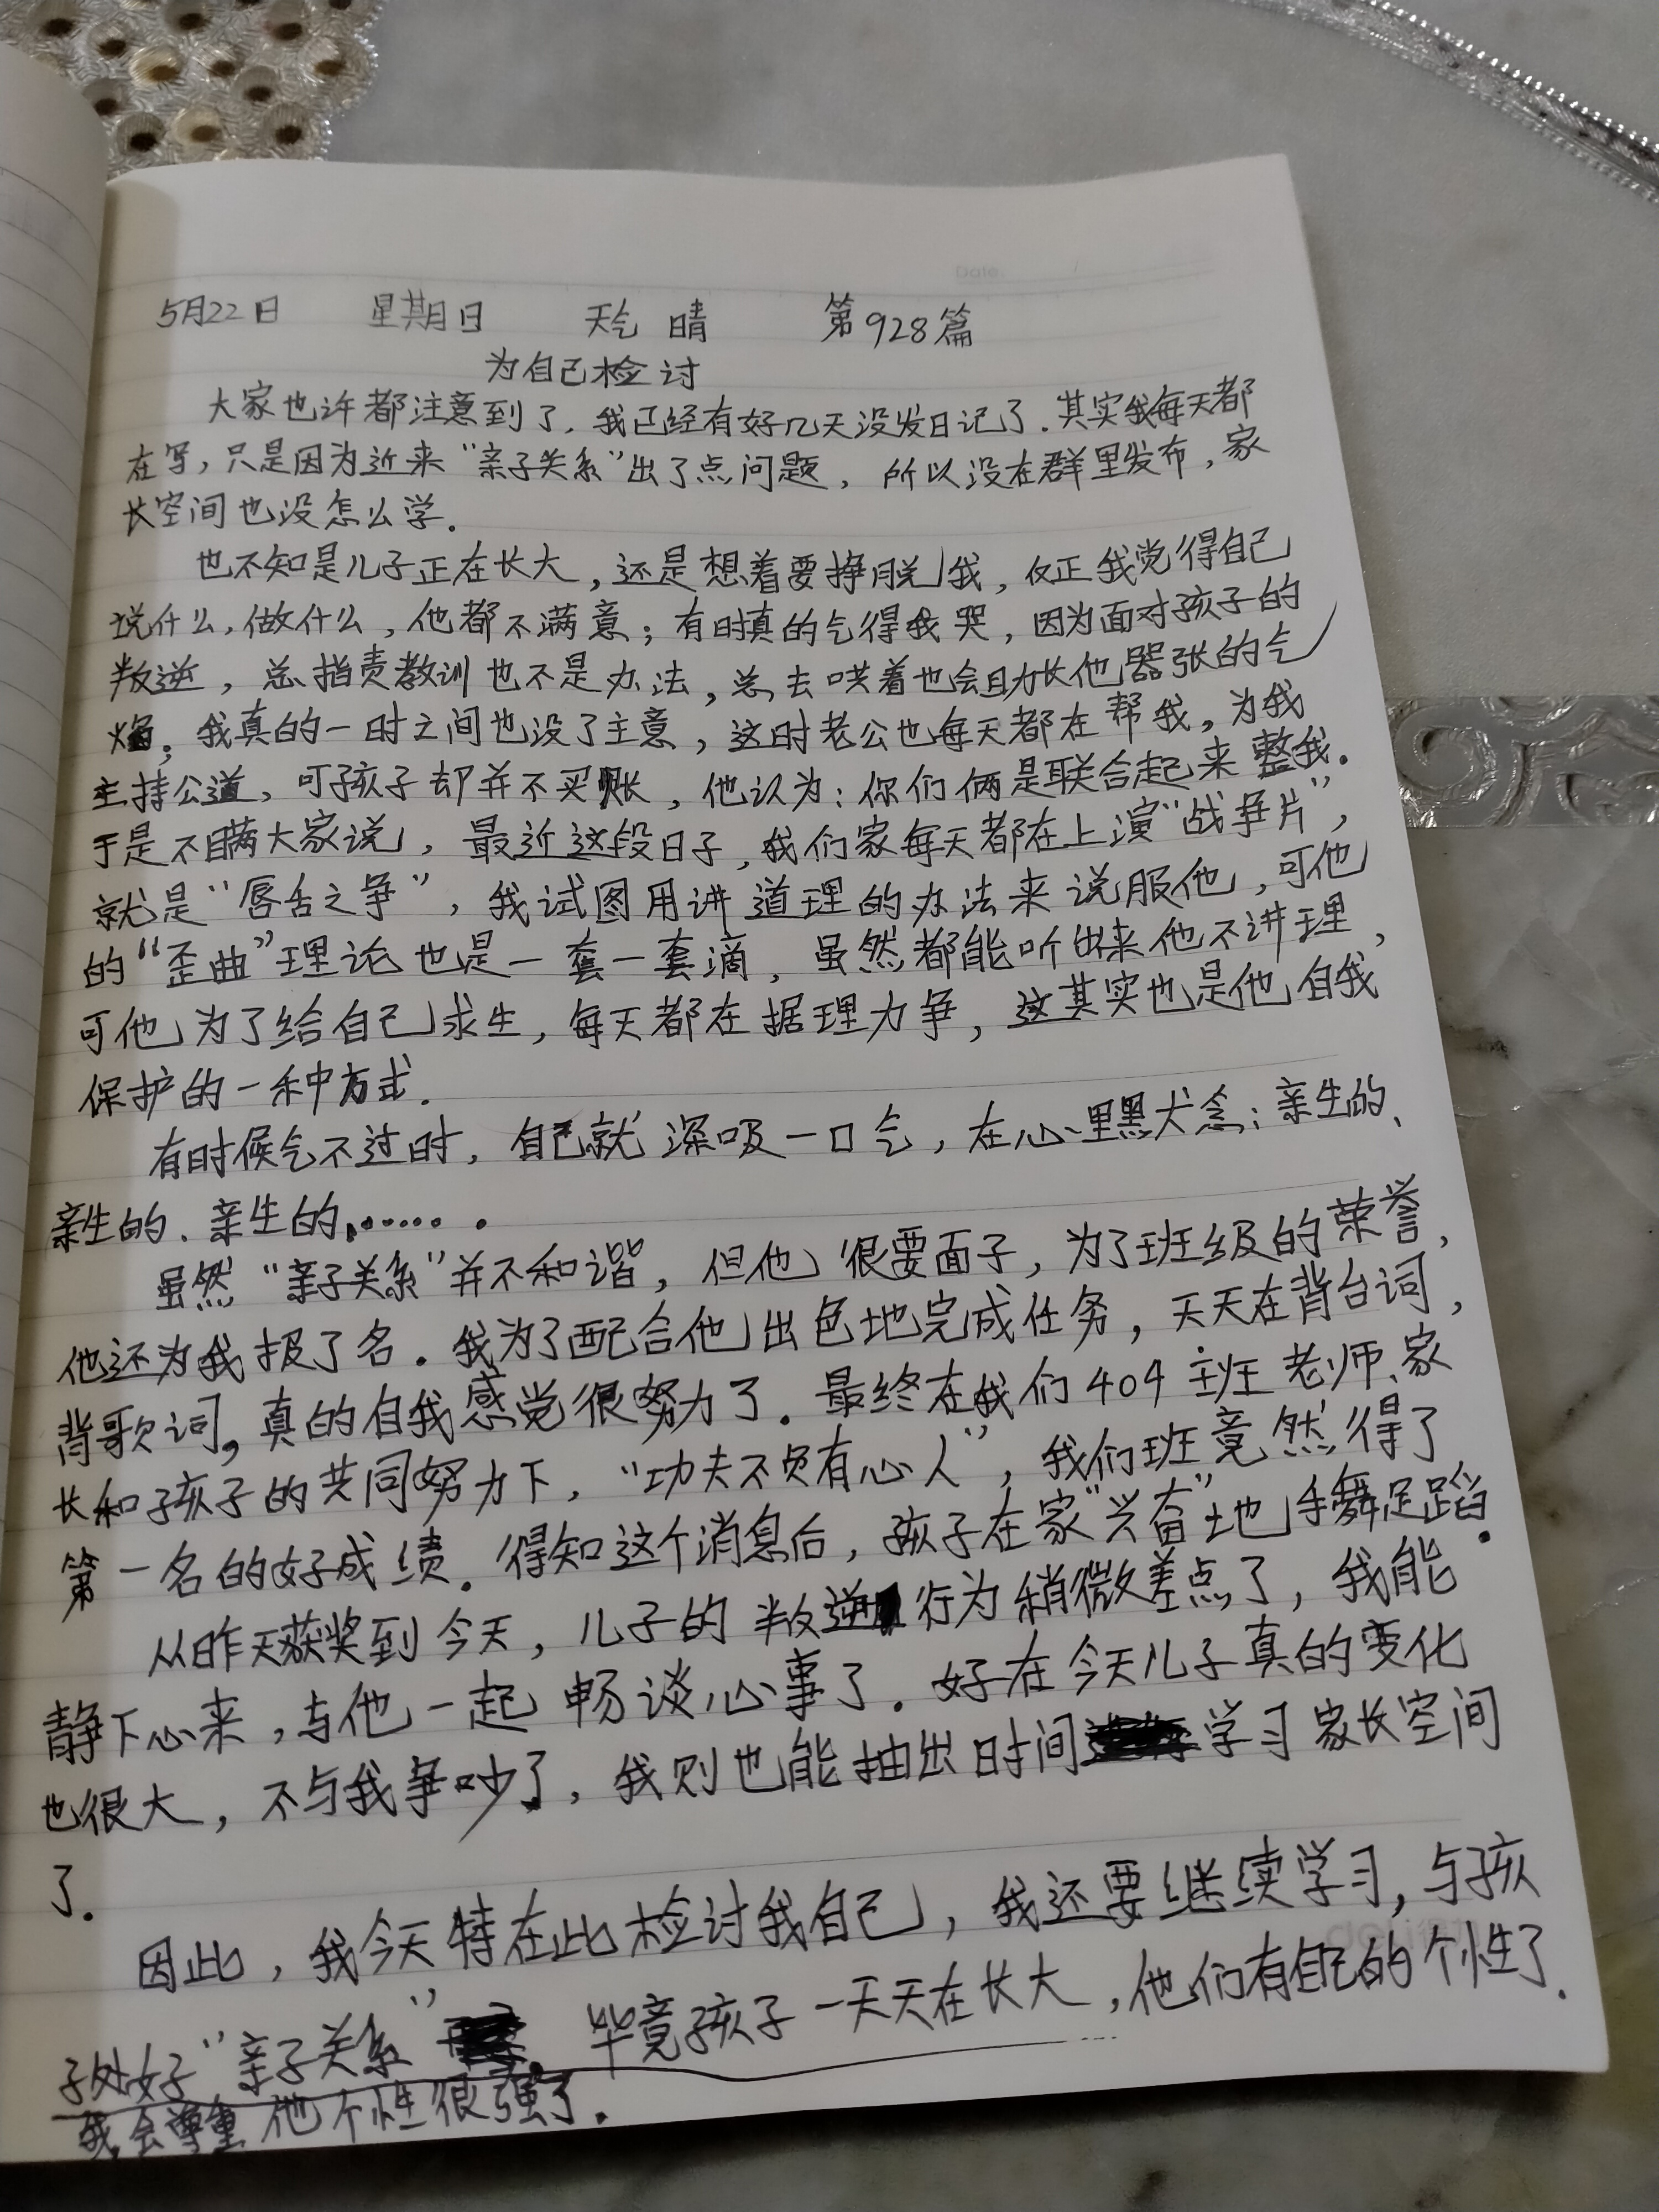 Date:
5月22日 星期日 天气 晴 第928篇
为自己检讨
大家也许都注意到了,我已经有好几天没发日记了.其实我每天都
在写,只是因为近来“亲子关系”出了点问题,所以没在群里发布,家
长空间也没怎么学.
也不知是儿子正在长大,还是想着要挣脱我,反正我觉得自己
说什么,做什么,他都不满意;有时真的气得我哭,因为面对孩子的
叛逆,总指责教训也不是办法,总去哄着也会助长他嚣张的气
焰;我真的一时之间也没了主意,这时老公也每天都在帮我,为我
主持公道,可孩子却并不买账,他认为:你们俩是联合起来整我.
于是不瞒大家说,最近这段日子,我们家每天都在上演“战争片”,
就是“唇舌之争”,我试图用讲道理的办法来说服他,可他
的“歪曲”理论也是一套一套滴,虽然都能听出来他不讲理,
可他为了给自己求生,每天都在据理力争,这其实也是他自我
保护的一种方式.
有时候气不过时,自己就深吸一口气,在心里默念:亲生的、
亲生的、亲生的.......
虽然“亲子关系”并不和谐,但他很要面子,为了班级的荣誉,
他还为我报了名.我为了配合他出色地完成任务,天天在背台词,
背歌词,真的自我感觉很努力了.最终在我们404班老师、家
长和孩子的共同努力下,“功夫不负有心人”,我们班竟然得了
第一名的好成绩.得知这个消息后,孩子在家“兴奋”地手舞足蹈.
从昨天获奖到今天,儿子的叛逆行为稍微差点了,我能
静下心来,与他一起畅谈心事了.好在今天儿子真的变化
也很大,不与我争吵了,我则也能抽出时间学习家长空间
了.
因此,我今天特在此检讨我自己,我还要继续学习,与孩
子处好“亲子关系”.毕竟孩子一天天在长大,他们有自己的个性了.
我会尊重他个性很强了.